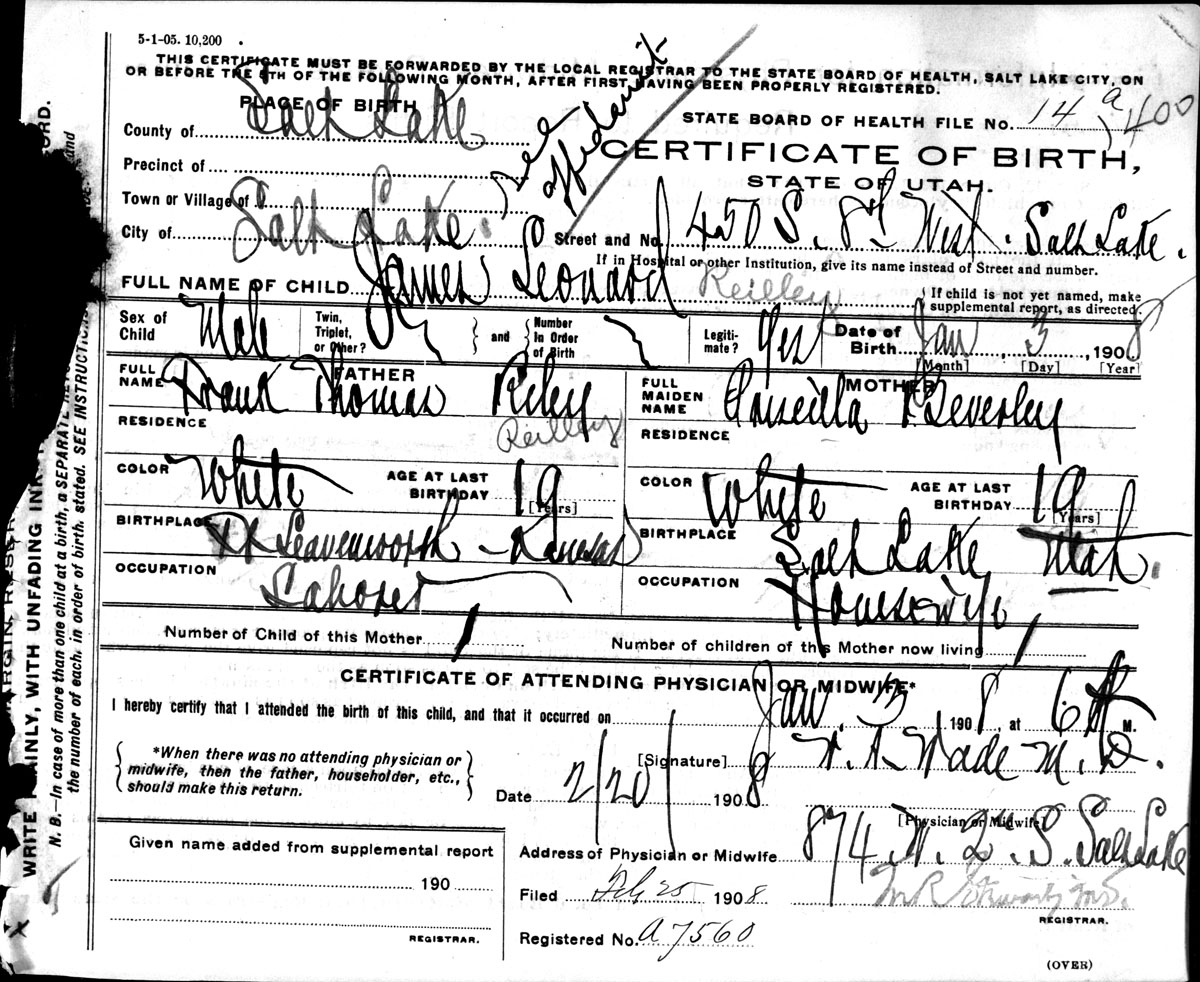 5-1-05. 10,200
THIS CERTIFICATE MUST BE FORWARDED BY THE LOCAL REGISTRAR TO THE STATE BOARD OF HEALTH, SALT LAKE CITY, ON
OR BEFORE THE 5TH OF THE FOLLOWING MONTH, AFTER FIRST HAVING BEEN PROPERLY REGISTERED.
See affidavit
PLACE OF BIRTH
STATE BOARD OF HEALTH FILE No. 14 a 400
County of Salt Lake
CERTIFICATE OF BIRTH,
STATE OF UTAH.
Precinct of
Town or Village of
City of Salt Lake. Street and No. 450 S. 8th West. Salt Lake.
If in Hospital or other Institution, give its name instead of Street and number.
FULL NAME OF CHILD James Leonard Reilley
If child is not yet named, make
supplemental report, as directed.
Sex of Child Male Twin, Triplet, or Other? and Number In Order of Birth Legitimate? Yes Date of Birth Jan 3, 1908
[Month] [Day] [Year]
FATHER
FULL NAME Frank Thomas Riley
Reilley
MOTHER
FULL MAIDEN NAME Priscilla Beverley
RESIDENCE
RESIDENCE
COLOR White AGE AT LAST BIRTHDAY 19 [Years]
COLOR White AGE AT LAST BIRTHDAY 19 [Years]
BIRTHPLACE Ft Leavenworth - Kansas
BIRTHPLACE Salt Lake, Utah.
OCCUPATION Laborer
OCCUPATION Housewife
Number of Child of this Mother 1
Number of children of this Mother now living 1
CERTIFICATE OF ATTENDING PHYSICIAN OR MIDWIFE*
I hereby certify that I attended the birth of this child, and that it occurred on Jan. 3, 1908, at 6 A M.
*When there was no attending physician or
midwife, then the father, householder, etc.,
should make this return.
[Signature] Wade M.D.
Date 2/20/ 1908
[Physician or Midwife]
Given name added from supplemental report
190
REGISTRAR.
Address of Physician or Midwife 874 W. 2. S. Salt Lake
Filed Feb 25 1908
M R Stewart, M.D.
REGISTRAR.
Registered No. a 7560
(OVER)
WRITE PLAINLY, WITH UNFADING INK
N. B.—In case of more than one child at a birth, a SEPARATE
the number of each, in order of birth, stated. SEE INSTRUCTION